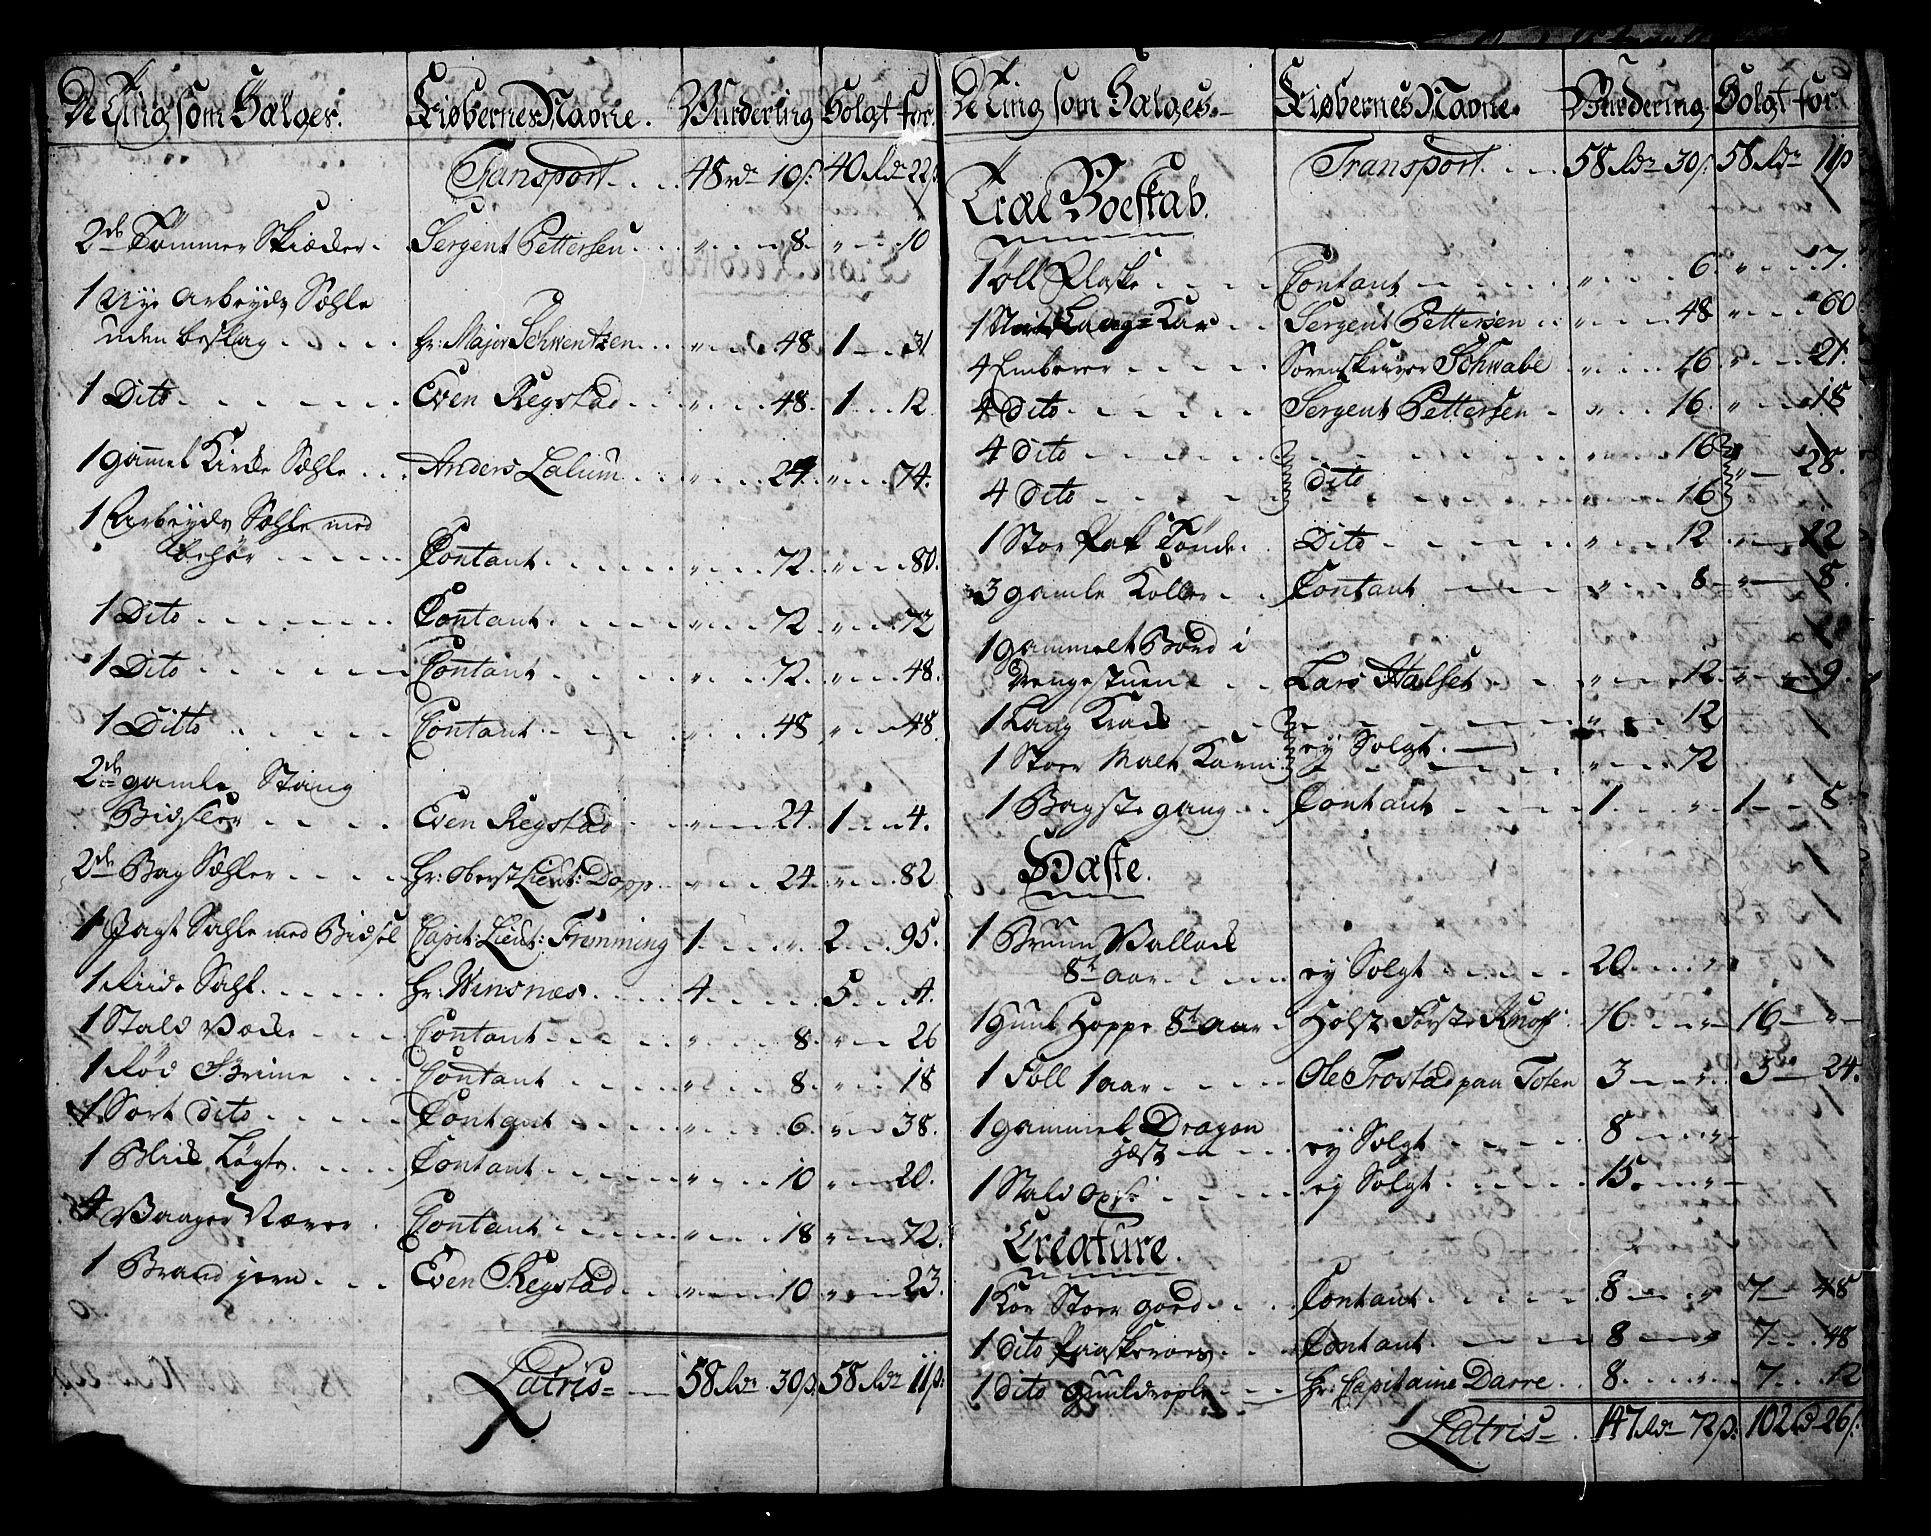 De Ting som Sælges. Kiøbernes Navne. Vurdering Solgt for.
Transport 48 rdr 10 s: 40 Rdr 22 s
2de Tømmer Skiæder Sergent Pettersen " 8 " 10
1 Nye Arbeyds Sæhle
uden beslag Hr: Major Schwentzen " 48 1 31
1 Dito Even Regstad " 48 1 12
1 gammel Kirke Sæhle Anders Lalium " 24 " 74.
1 Arbeyds Sæhle med
behør Contant " 72 " 80.
1 Dito Contant " 72 " 72
1 Dito Contant " 72 " 48.
1 Ditto Contant " 48 " 48.
2de gamle Stang
Bidsler Even Regstad " 24 1 4.
2de Bag Sæhler Hr: Oberst Lieut: Dopp " 24 " 82
1 Jagt Sahle med Bidsel Capit: Lieut: Fremming 1 " 2 95.
1 Riide Sahl Hr: Winsnæs 4 5 4.
1 Stald Contant " 8 " 26
1 Rød Grime Contant " 8 " 18
1 Sort dito Contant " 6 " 38.
1 Blik Løgte Contant " 10 " 20.
4 Vaager Næver Contant " 18 " 72.
1 Brand jern Even Regstad " 10 " 23.
Latris 58 Rdr 30 s 58 Rdr 11 s:
De Ting som Sælges. Kiøbernes Navne. Vurdering Solgt for.
Transport 58 Rdr 30 s: 58 Rdr 11 s
Træe Boeskab.
1 Øll Flaske Contant " 6 " 7.
1 Kar Sergent Pettersen " 48 " 60
4 Embarer Sorenskriver Schwabe " 16 " 21
4 Dito Sergent Pettersen " 16 " 18
4 Dito " 16
dito " 28.
4 Dito " 16
1 Stor Tønde Dito " 12 " 12
3 gamle Koller Contant " 8 " 8.
1 gammelt Bord i
Drengestuen Lars Halset " 12 " 9.
1 Lang Krak " 12
ey Solgt
1 Stoer Malt Karm " 72
1 Bagste gang Contant 1 " 1 8
Hæste.
1 Bruun Vallak
8te aar ey Solgt 20 "
1 Guul Hoppe 8te aar Holtz Første Knoff 16 " 16 "
1 Foll 1 aar Ole Trostad paa Toten 3 " 3 24.
1 gammel Dragon
Hæst ey Solgt 8 "
1 Stald ey Solgt 15 "
Creature.
1 Koe Stoer gord Contant 8 " 7 48
1 dito Paaskeroes Contant 8 " 7 48
1 dito Guuldrople Hr: Capitaine Darre 8 " 7 12
Latris 147 Rdr 72 s: 102 Rd 26 s: